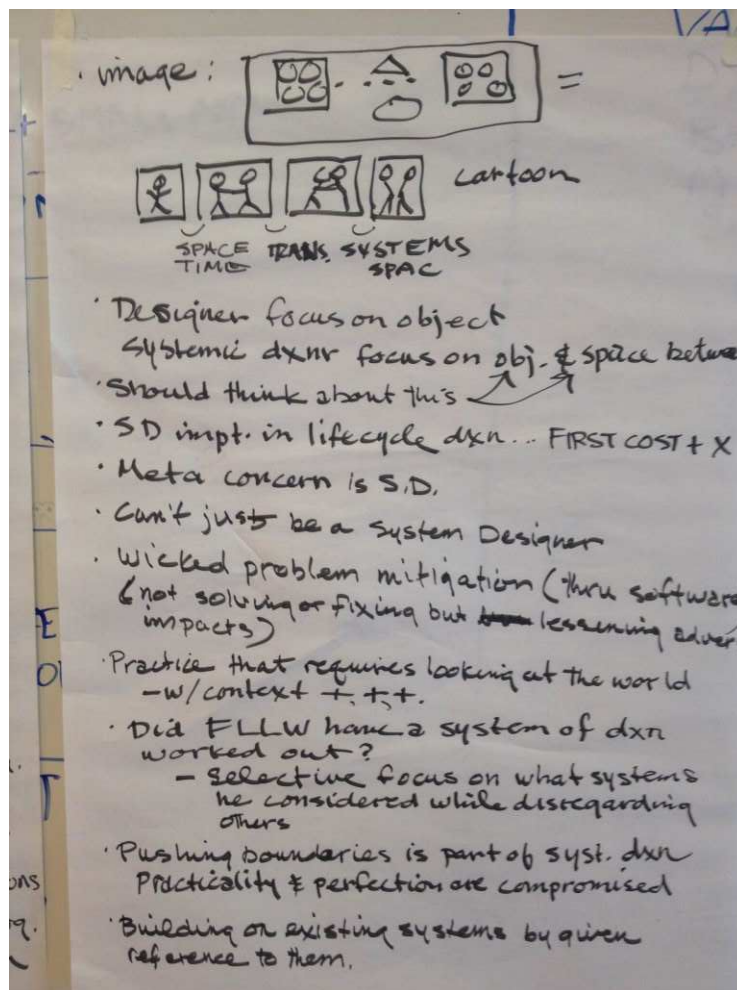 VA
· image: =
cartoon
SPACE TRANS. SYSTEMS
TIME SPAC
· Designer focus on object
systemic dxnr focus on obj. & space betwe
· Should think about this
· SD impt. in lifecycle dxn... FIRST COST + X
· Meta concern is S.D.
· Can't just be a System Designer
· Wicked problem mitigation (thru software
(not solving or fixing but lessening adver
impacts)
· Practice that requires looking at the world
- w/context +, +, +.
· Did FLLW have a system of dxn
worked out?
- Selective focus on what systems
he considered while disregarding
others
· Pushing boundaries is part of syst. dxn
Practicality & perfection are compromised
· Building on existing systems by given
reference to them.